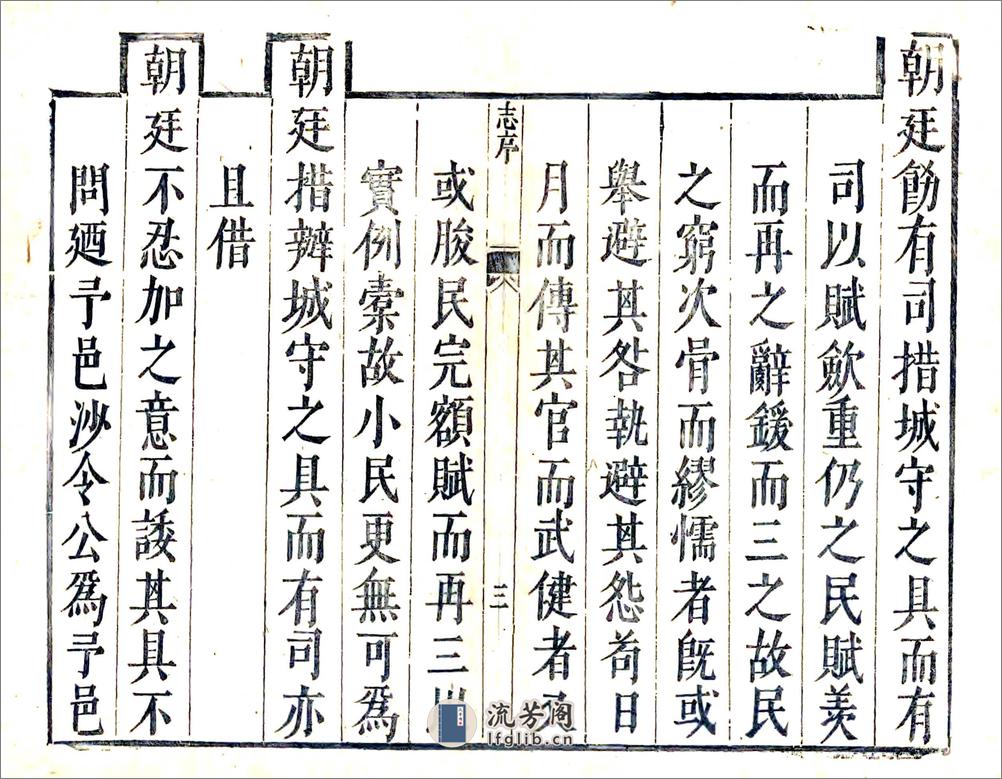 朝廷飭有司措城守之具而有
司以賦歛重仍之民賦羨
而再之辭鍰而三之故民
之窮次骨而繆懦者旣或
舉避其咎執避其怨苟日
月而傳其官而武健者
志序
三
或朘民完額賦而再三
實例橐故小民更無可爲
朝廷措辦城守之具而有司亦
且借
朝廷不忍加之意而諉其具不
問廼予邑沙令公爲予邑
流芳阁
lfglib.cn